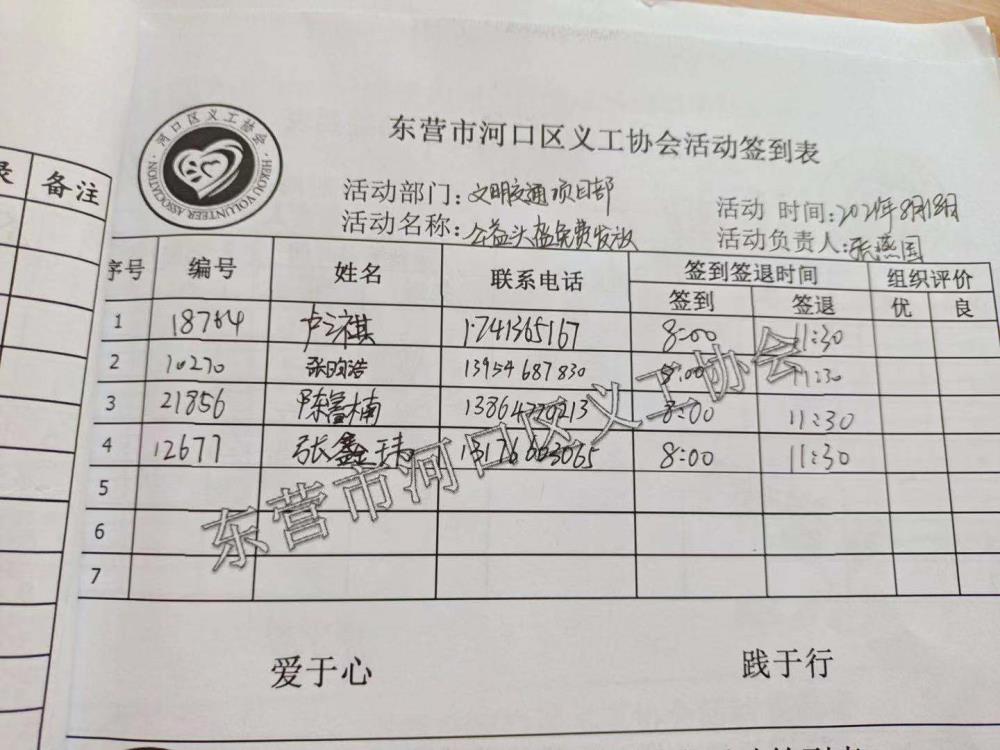 录
备注
河口区义工协会
HEKOU VOLUNTEER ASSOCIATION
东营市河口区义工协会活动签到表
活动部门:文明交通项目部
活动 时间:2021年8月18日
活动名称:公益头盔免费发放
活动负责人:张燕国
序号 编号 姓名 联系电话 签到签退时间 组织评价
签到 签退 优 良
1 18764 卢祺 17241365167 8:00 11:30
2 10270 张昀浩 13954687830 8:00 11:30
3 21856 陈鲁楠 8:00 11:30
4 12677 张鑫玮 8:00 11:30
5
6
7
东营市河口区义工协会
爱于心 践于行